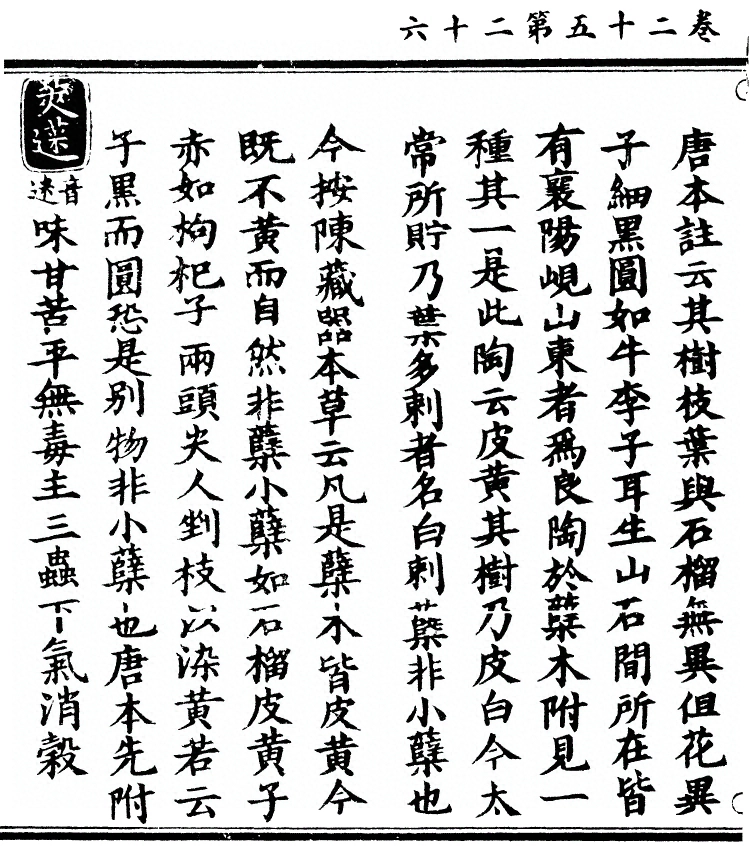 卷二十五第二十六
唐本註云其樹枝葉與石榴無異但花異
子細黑圓如牛李子耳生山石間所在皆
有襄陽峴山東者爲良陶於蘗木附見一
種其一是此陶云皮黃其樹乃皮白今太
常所貯乃葉多刺者名白刺蘗非小蘗也
今按陳藏器本草云凡是蘗木皆皮黃今
既不黃而自然非蘗小蘗如石榴皮黃子
赤如枸杞子兩頭尖人剉枝以染黃若云
子黑而圓恐是別物非小蘗也唐本先附
莢蒾音迷味甘苦平無毒主三蟲下氣消穀